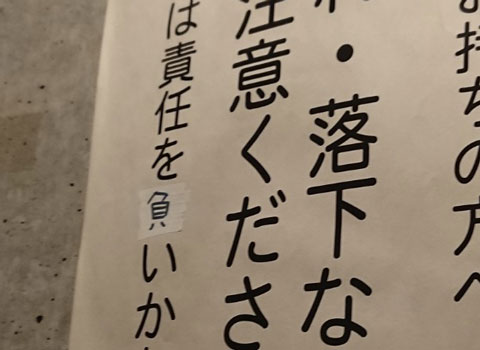 お持ちの方へ
れ・落下な
注意くださ
は責任を負いか